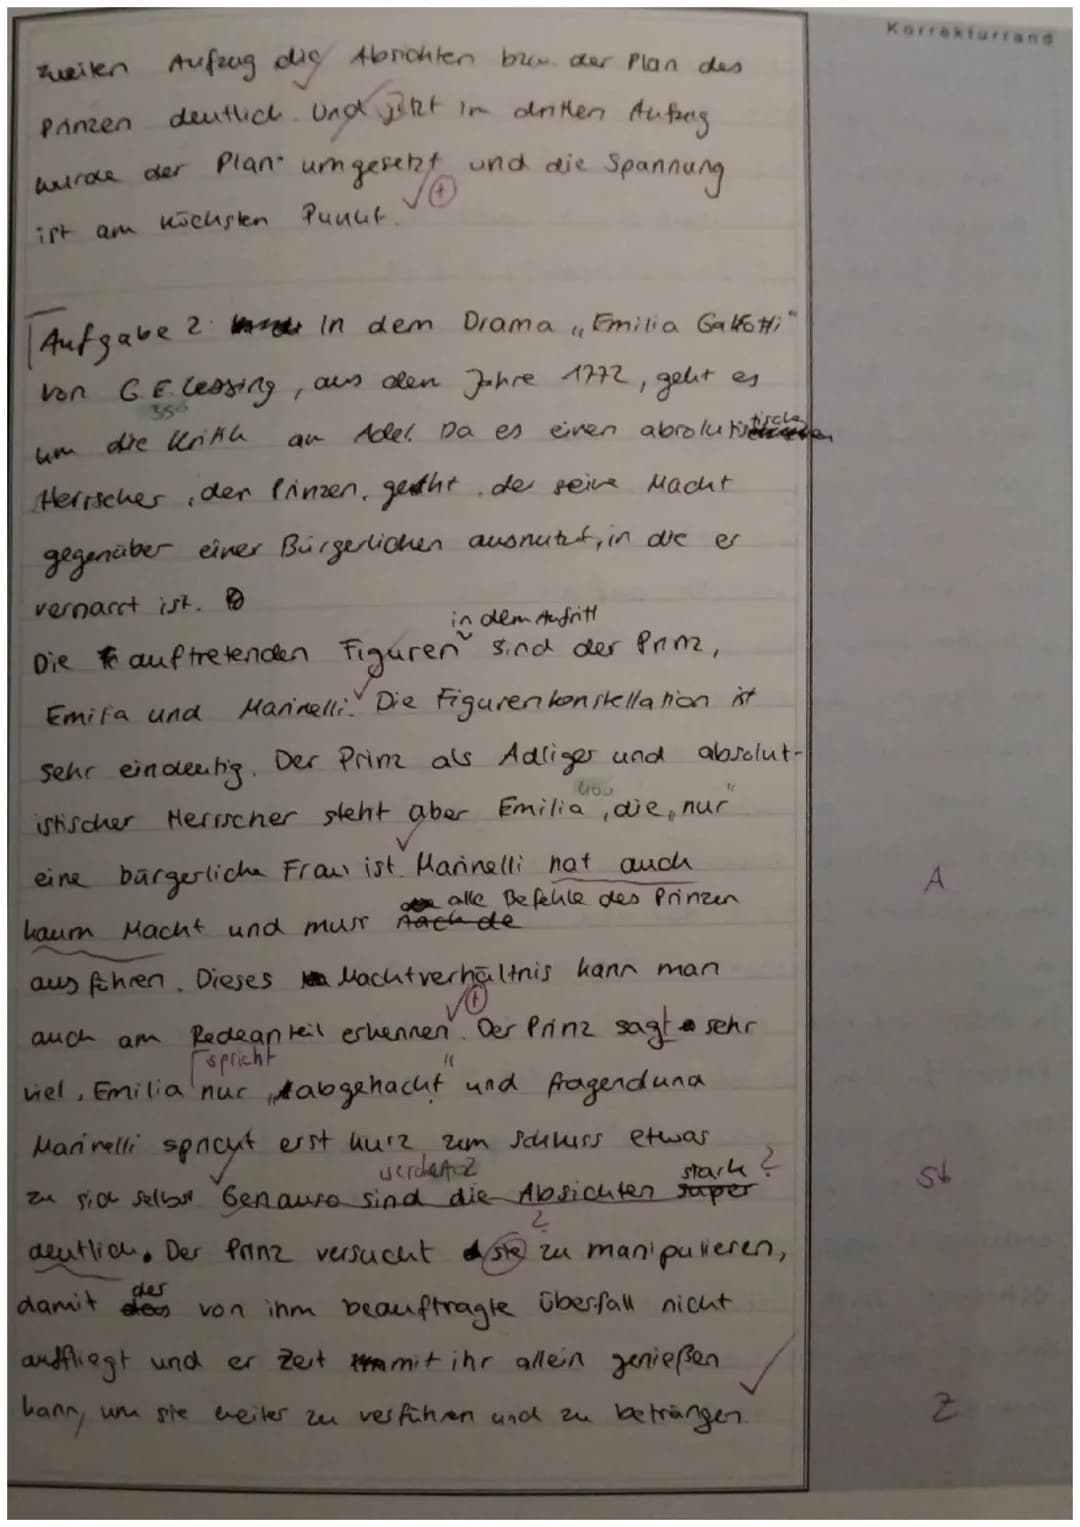 Korrekturrand
zweiten Aufzug die Absichten bzw. der Plan des
Prinzen deutlich. Und jetzt im dritten Aufzug
wurde der Plan umgesetzt und die Spannung
ist am höchsten Punkt.
Aufgabe 2: In dem Drama „Emilia Galotti"
von G.E. Lessing, aus dem Jahre 1772, geht es
350
um die Kritik am Adel. Da es einen absolutistische
Herrscher, der Prinzen, geht, der seine Macht
gegenüber einer Bürgerlichen ausnutzt, in die er
vernarrt ist.
in dem Auftritt
Die auftretenden Figuren sind der Prinz,
Emilia und Marinelli. Die Figurenkonstellation ist
sehr eindeutig. Der Prinz als Adliger und absolut-
400
istischer Herrscher steht über Emilia, die „nur"
eine bürgerliche Frau ist. Marinelli hat auch
A
alle Befehle des Prinzen
kaum Macht und muss nach de
ausführen. Dieses Machtverhältnis kann man
auch am Redeanteil erkennen. Der Prinz sagt sehr
spricht
viel, Emilia nur „abgehackt" und fragend und
Marinelli spricht erst kurz zum Schluss etwas
werden? stark ?
zu sich selbst. Genauso sind die Absichten super
St
?
deutlich. Der Prinz versucht sie zu manipulieren,
der
damit von ihm beauftragte Überfall nicht
auffliegt und er Zeit mit ihr allein genießen
kann, um sie weiter zu verführen und zu beträngen.
Z